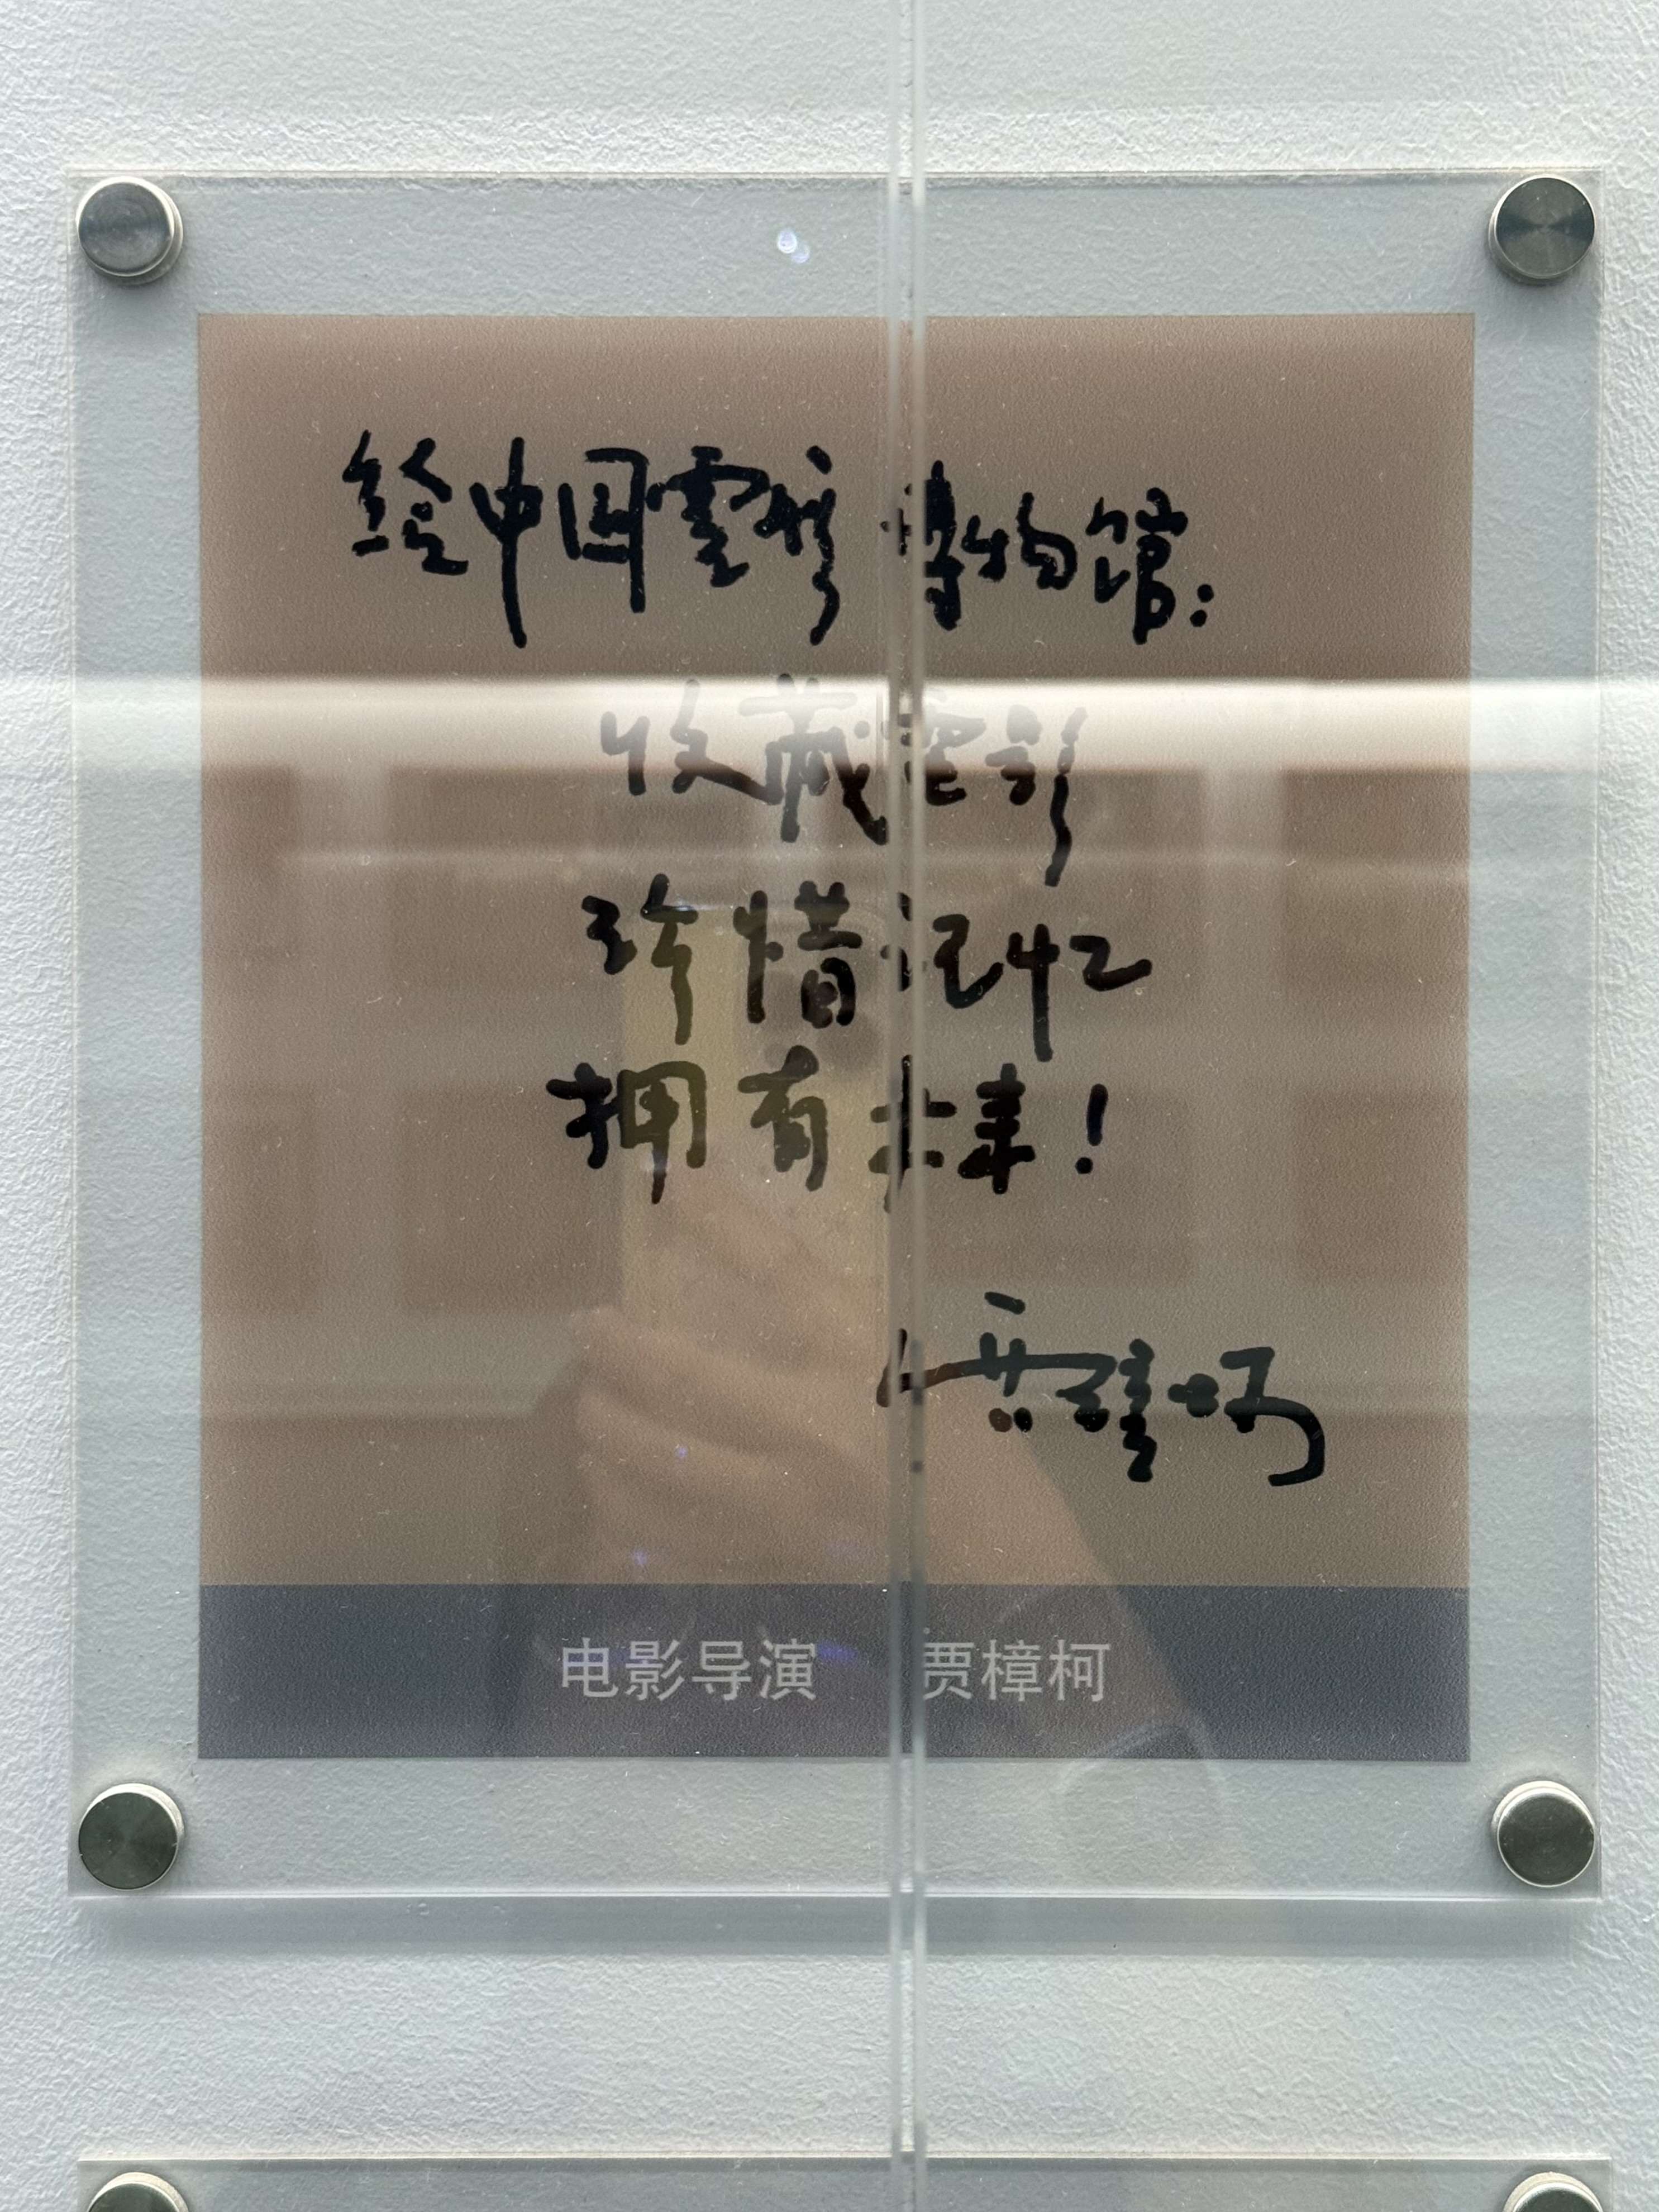 给中国電影博物馆:
收藏電影
珍惜记忆
拥有未来!
贾樟柯
电影导演 贾樟柯